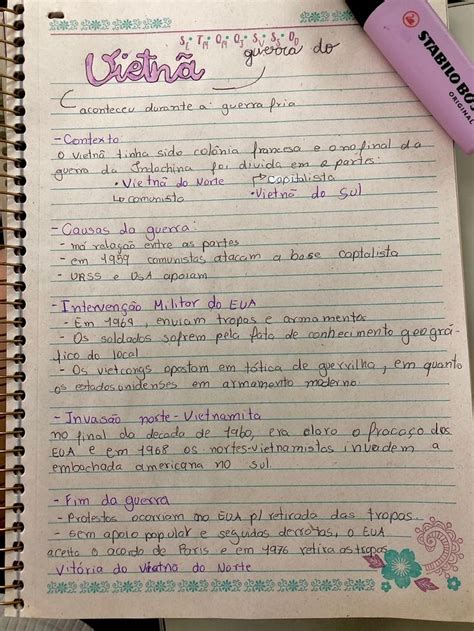 S T Q Q S S D
guerra do
Vietnã
aconteceu durante a guerra fria
- Contexto:
O Vietnã tinha sido colônia francesa e ano final da
guerra da Indochina foi divida em 2 partes:
• Vietnã do Norte
↳ comunista
↱ Capitalista
• Vietnã do Sul
- Causas da guerra:
- má relação entre as partes
- em 1959 comunistas atacam a base captalista
- URSS e USA apoiam
- Intervenção Militar do EUA
- Em 1964, enviam tropas e armamentos
- Os soldados sofrem pelo fato de conhecimento geográ-
fico do local
- Os vietcongs apostam em tática de guerrilha, em quanto
os estadosunidenses em armamento moderno
- Invasão norte-Vietnamita
no final da decada de 1960, era claro o fracaço dos
EUA e em 1968 os nortes-vietnamistas invadem a
embachada americana no sul.
- Fim da guerra
- Protestos ocorriam no EUA p/ retirada das tropas.
- Sem apoio popular e seguidas derrotas, o EUA
aceita o acordo de Paris e em 1976 retira as tropas.
Vitória do Vietna do Norte
STABILO BO
ORIGINAL